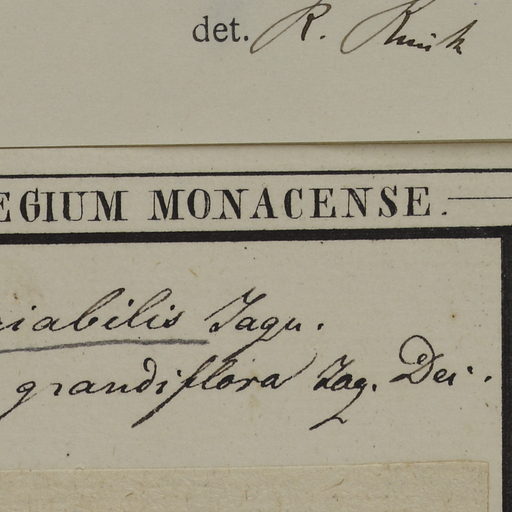 det. R. Knuth
EGIUM MONACENSE.
riabilis Jaqu.
grandiflora Jaq. Dec.